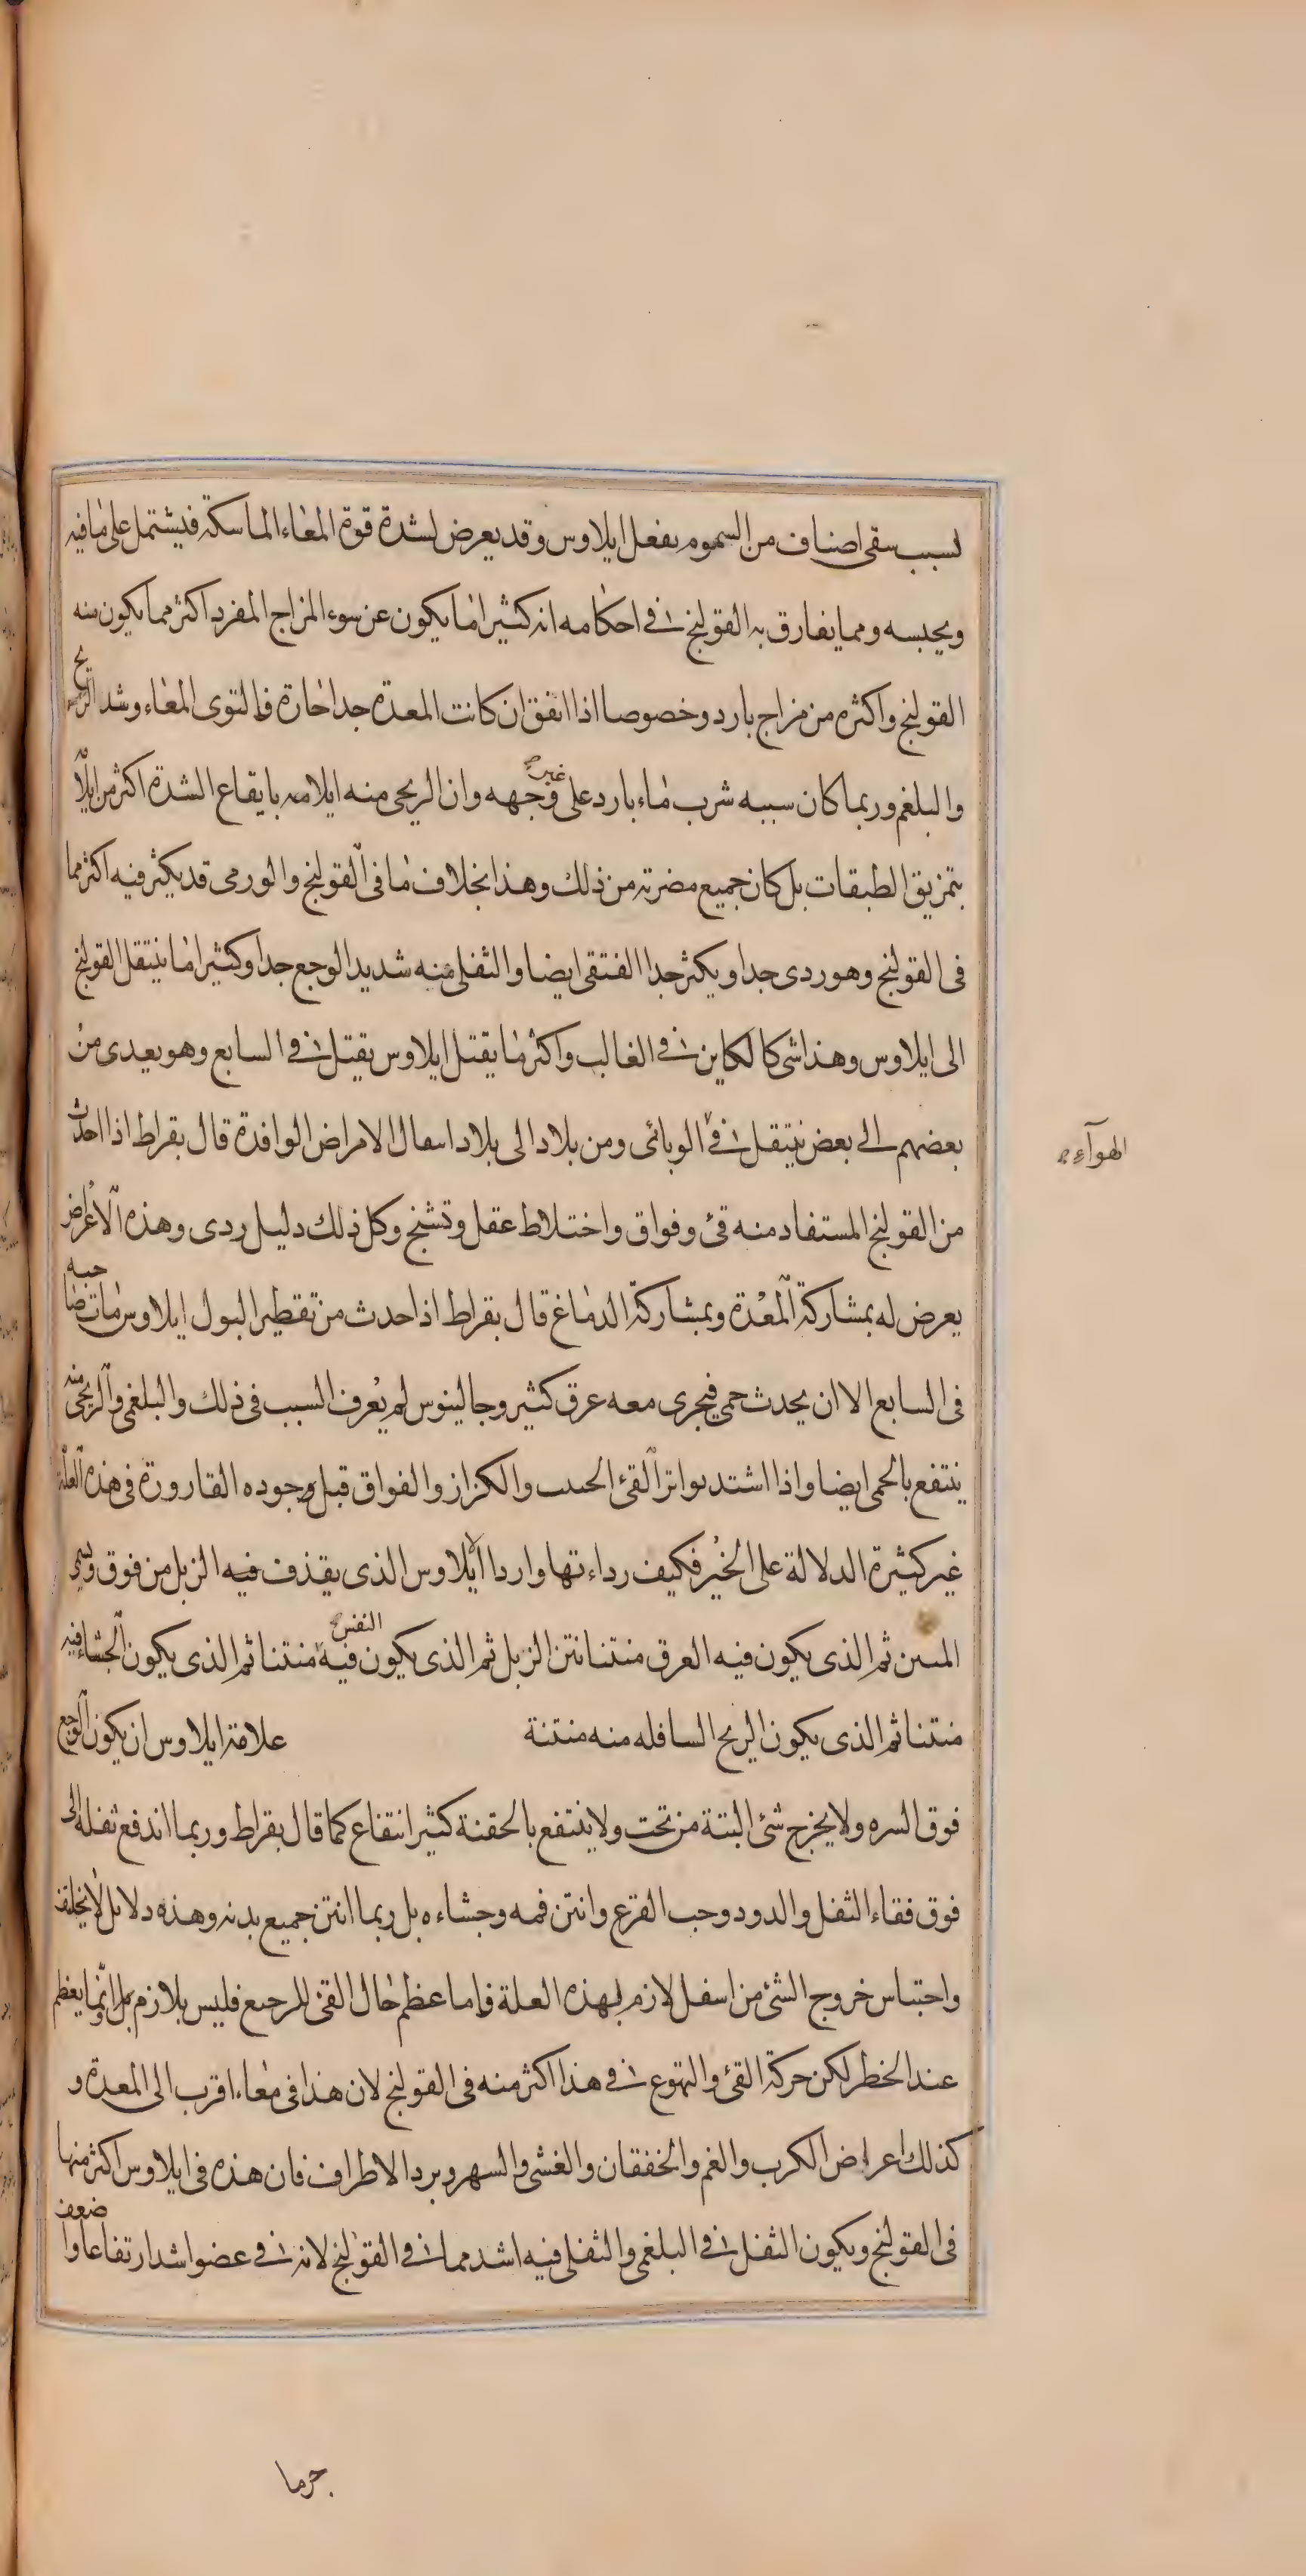 لسبب سقى اصناف من السموم يفعل ايلاوس وقد يعرض لشدة قوة المعاء الماسكة فيشتمل على ما فيه
ويحبسه ومما يفارق به القولنج فى احكامه انه كثيرا ما يكون عن سوء المزاج المفرد اكثر مما يكون منه
القولنج واكثره من مزاج بارد وخصوصا اذا اتفق ان كانت المعدة جدا حارة فالتوى المعاء وشد الريح
والبلغم وربما كان سببه شرب ماء بارد على غير وجهه وان الريحى منه ايلامه بايقاع الشدة اكثر من ايلا
بتمزيق الطبقات بل كان جميع مضرته من ذلك وهذا بخلاف ما فى القولنج والورمى قد يكثر فيه اكثر مما
فى القولنج وهو ردى جدا ويكثر جدا الفتقى ايضا والثفلى منه شديد الوجع جدا وكثيرا ما ينتقل القولنج
الى ايلاوس وهذا شى كالكاين فى الغالب واكثر ما يقتل ايلاوس يقتل فى السابع وهو يعدى من
بعضهم الى بعض ينتقل فى الوبائى ومن بلاد الى بلاد اسعال الامراض الوافدة قال بقراط اذا احدث
الهوآء
من القولنج المستفاد منه قئ وفواق واختلاط عقل وتشنج وكل ذلك دليل ردى وهذه الاعراض
يعرض له بمشاركة المعدة وبمشاركة الدماغ قال بقراط اذا حدث من تقطير البول ايلاوس مات صاحبه
فى السابع الا ان يحدث حمى فيجرى معه عرق كثير وجالينوس لم يعرف السبب فى ذلك والبلغمى والريحى منه
ينتفع بالحمى ايضا واذا اشتد تواتر القئ الحبيب والكزاز والفواق قبل وجوده القارورة فى هذه العلة
غير كثيرة الدلالة على الخير فكيف رداءتها واردا ايلاوس الذى يقذف فيه الزبل من فوق ويسمى
المنتن ثم الذى يكون فيه العرق منتنا نتن الزبل ثم الذى يكون فيه النفس منتنا ثم الذى يكون الجشا فيه
منتنا ثم الذى يكون الريح السافله منه منتنة علامة ايلاوس ان يكون الوجع
فوق السره ولا يخرج شئ البتة من تحت ولا ينتفع بالحقنة كثير انتفاع كما قال بقراط وربما اندفع ثفله الى
فوق فقاء الثفل والدود وحب القرع وانتن فمه وجشاءه بل ربما انتن جميع بدنه وهذه دلايل لا يخلف
واحتباس خروج الشئ من اسفل لازم لهذه العلة فاما عظم حال القئ للرجيع فليس بلازم بل انما يعظم
عند الخطر لكن حركة القئ والتهوع فى هذا اكثر منه فى القولنج لان هذا فى معاء اقرب الى المعدة و
كذلك اعراض الكرب والغم والخفقان والغشى والسهر وبرد الاطراف فان هذه فى ايلاوس اكثر منها
فى القولنج ويكون الثفل فى البلغمى والثفلى فيه اشد مما فى القولنج لانه فى عضو اشد ارتفاعا واضعف
جرما